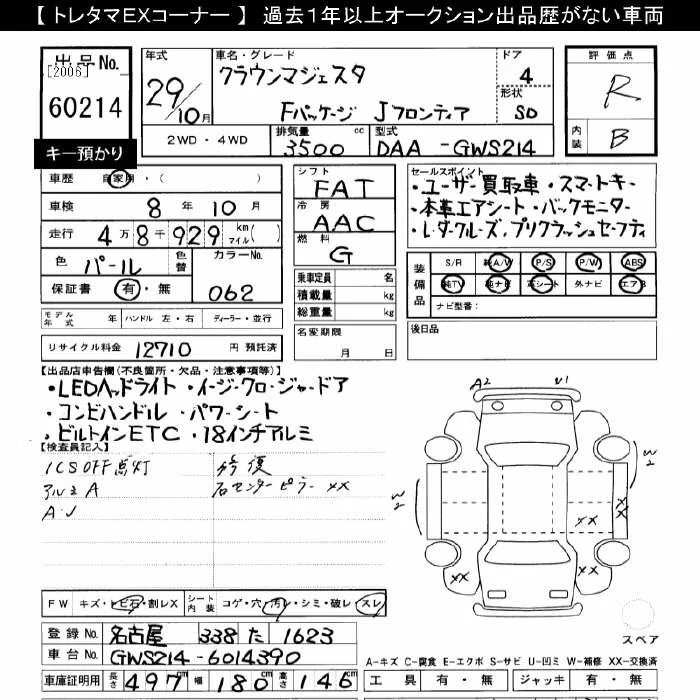 【 トレタマEXコーナー 】 過去1年以上オークション出品歴がない車両
出品No.
[2006]
60214
キー預かり
年式
29/10月
車名・グレード
クラウンマジェスタ
Fパッケージ Jフロンティア
ドア
4
形状
SD
評価点
R
内装
B
2WD・4WD
排気量
3500 cc
型式
DAA -GWS214
車歴 自家用・( )
車検 8年 10月
走行 4万8千929 km マイル( )
色 パール 色替 カラーNo. 062
保証書 有・無
モデル年式 年 ハンドル 左・右 ディーラー・並行
リサイクル料金 12710 円 預託済
シフト
FAT
冷房
AAC
燃料
G
乗車定員 名
積載量 kg
総重量 kg
名変期限
月 日
セールスポイント
・ユーザー買取車・スマートキー
・本革エアシート・バックモニター
・レーダークルーズ・プリクラッシュセーフティ
装備品
S/R 純A/W P/S P/W ABS
純TV 純ナビ 革シート 外ナビ エアB
ナビ型番:
後日品
【出品店申告欄(不良箇所・欠品・注意事項等)】
・LEDヘッドライト・イージークロージャードア
・コンビハンドル・パワーシート
・ビルトインETC・18インチアルミ
【検査員記入】
ICS OFF点灯
アルミA
A・U
修復
右センターピラーXX
A2 U1
W2 W2
XX XX XX
XX XX
スペア
FW キズ・トビ石・割レX シート内装 コゲ・穴・汚レ・シミ・破レ・スレ
登録No. 名古屋 338 た 1623
車台No. GWS214-6014390
車庫証明用 長さ 497 幅 180 高さ 146
A-キズ C-腐食 E-エクボ S-サビ U-凹ミ W-補修 XX-交換済
工具 有・無 ジャッキ 有・無